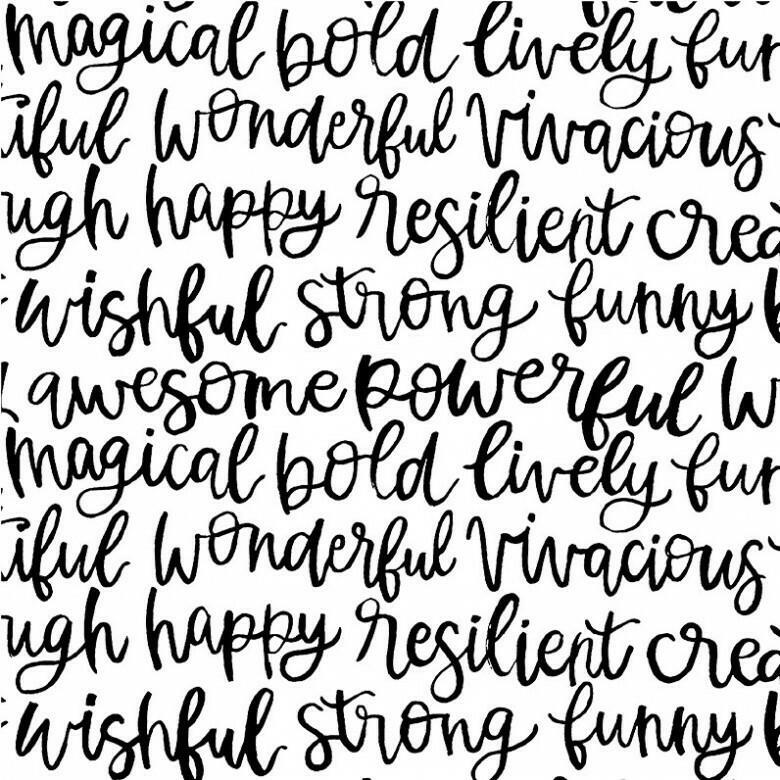 magical bold lively fun
iful wonderful vivacious
ugh happy resilient crea
wishful strong funny
awesome powerful w
magical bold lively fun
iful wonderful vivacious
ugh happy resilient crea
wishful strong funny